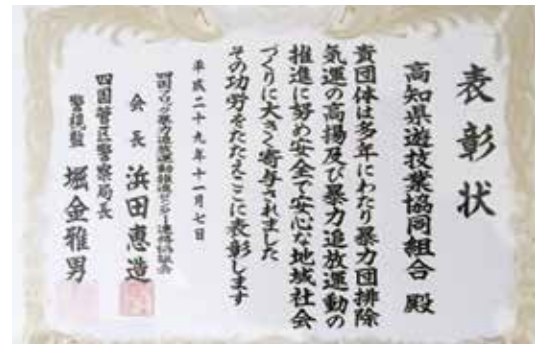 表彰状
高知県遊技業協同組合 殿
貴団体は多年にわたり暴力団排除
気運の高揚及び暴力追放運動の
推進に努め安全で安心な地域社会
づくりに大きく寄与されました
その功労をたたえここに表彰します
平成二十九年十一月七日
四国ブロック暴力追放運動推進センター連絡協議会
会長 浜田恵造
四国管区警察局長
警視監 堀金雅男